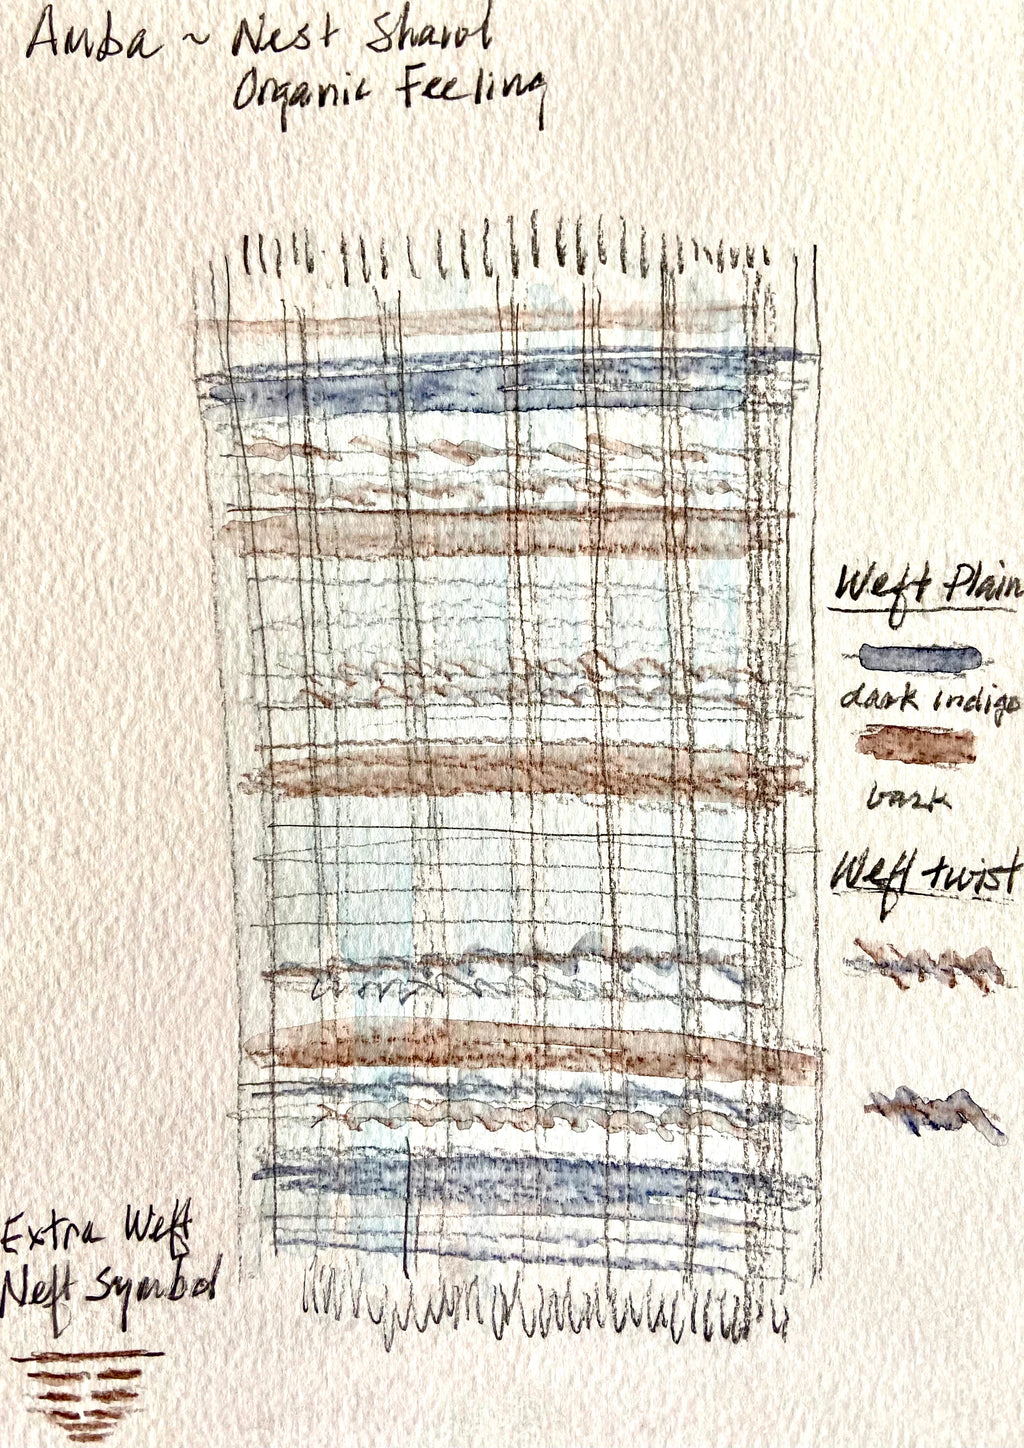 Amba ~ Nest Shawl
Organic Feeling
Weft Plain
dark indigo
bark
Weft twist
Extra Weft
Neft Symbol